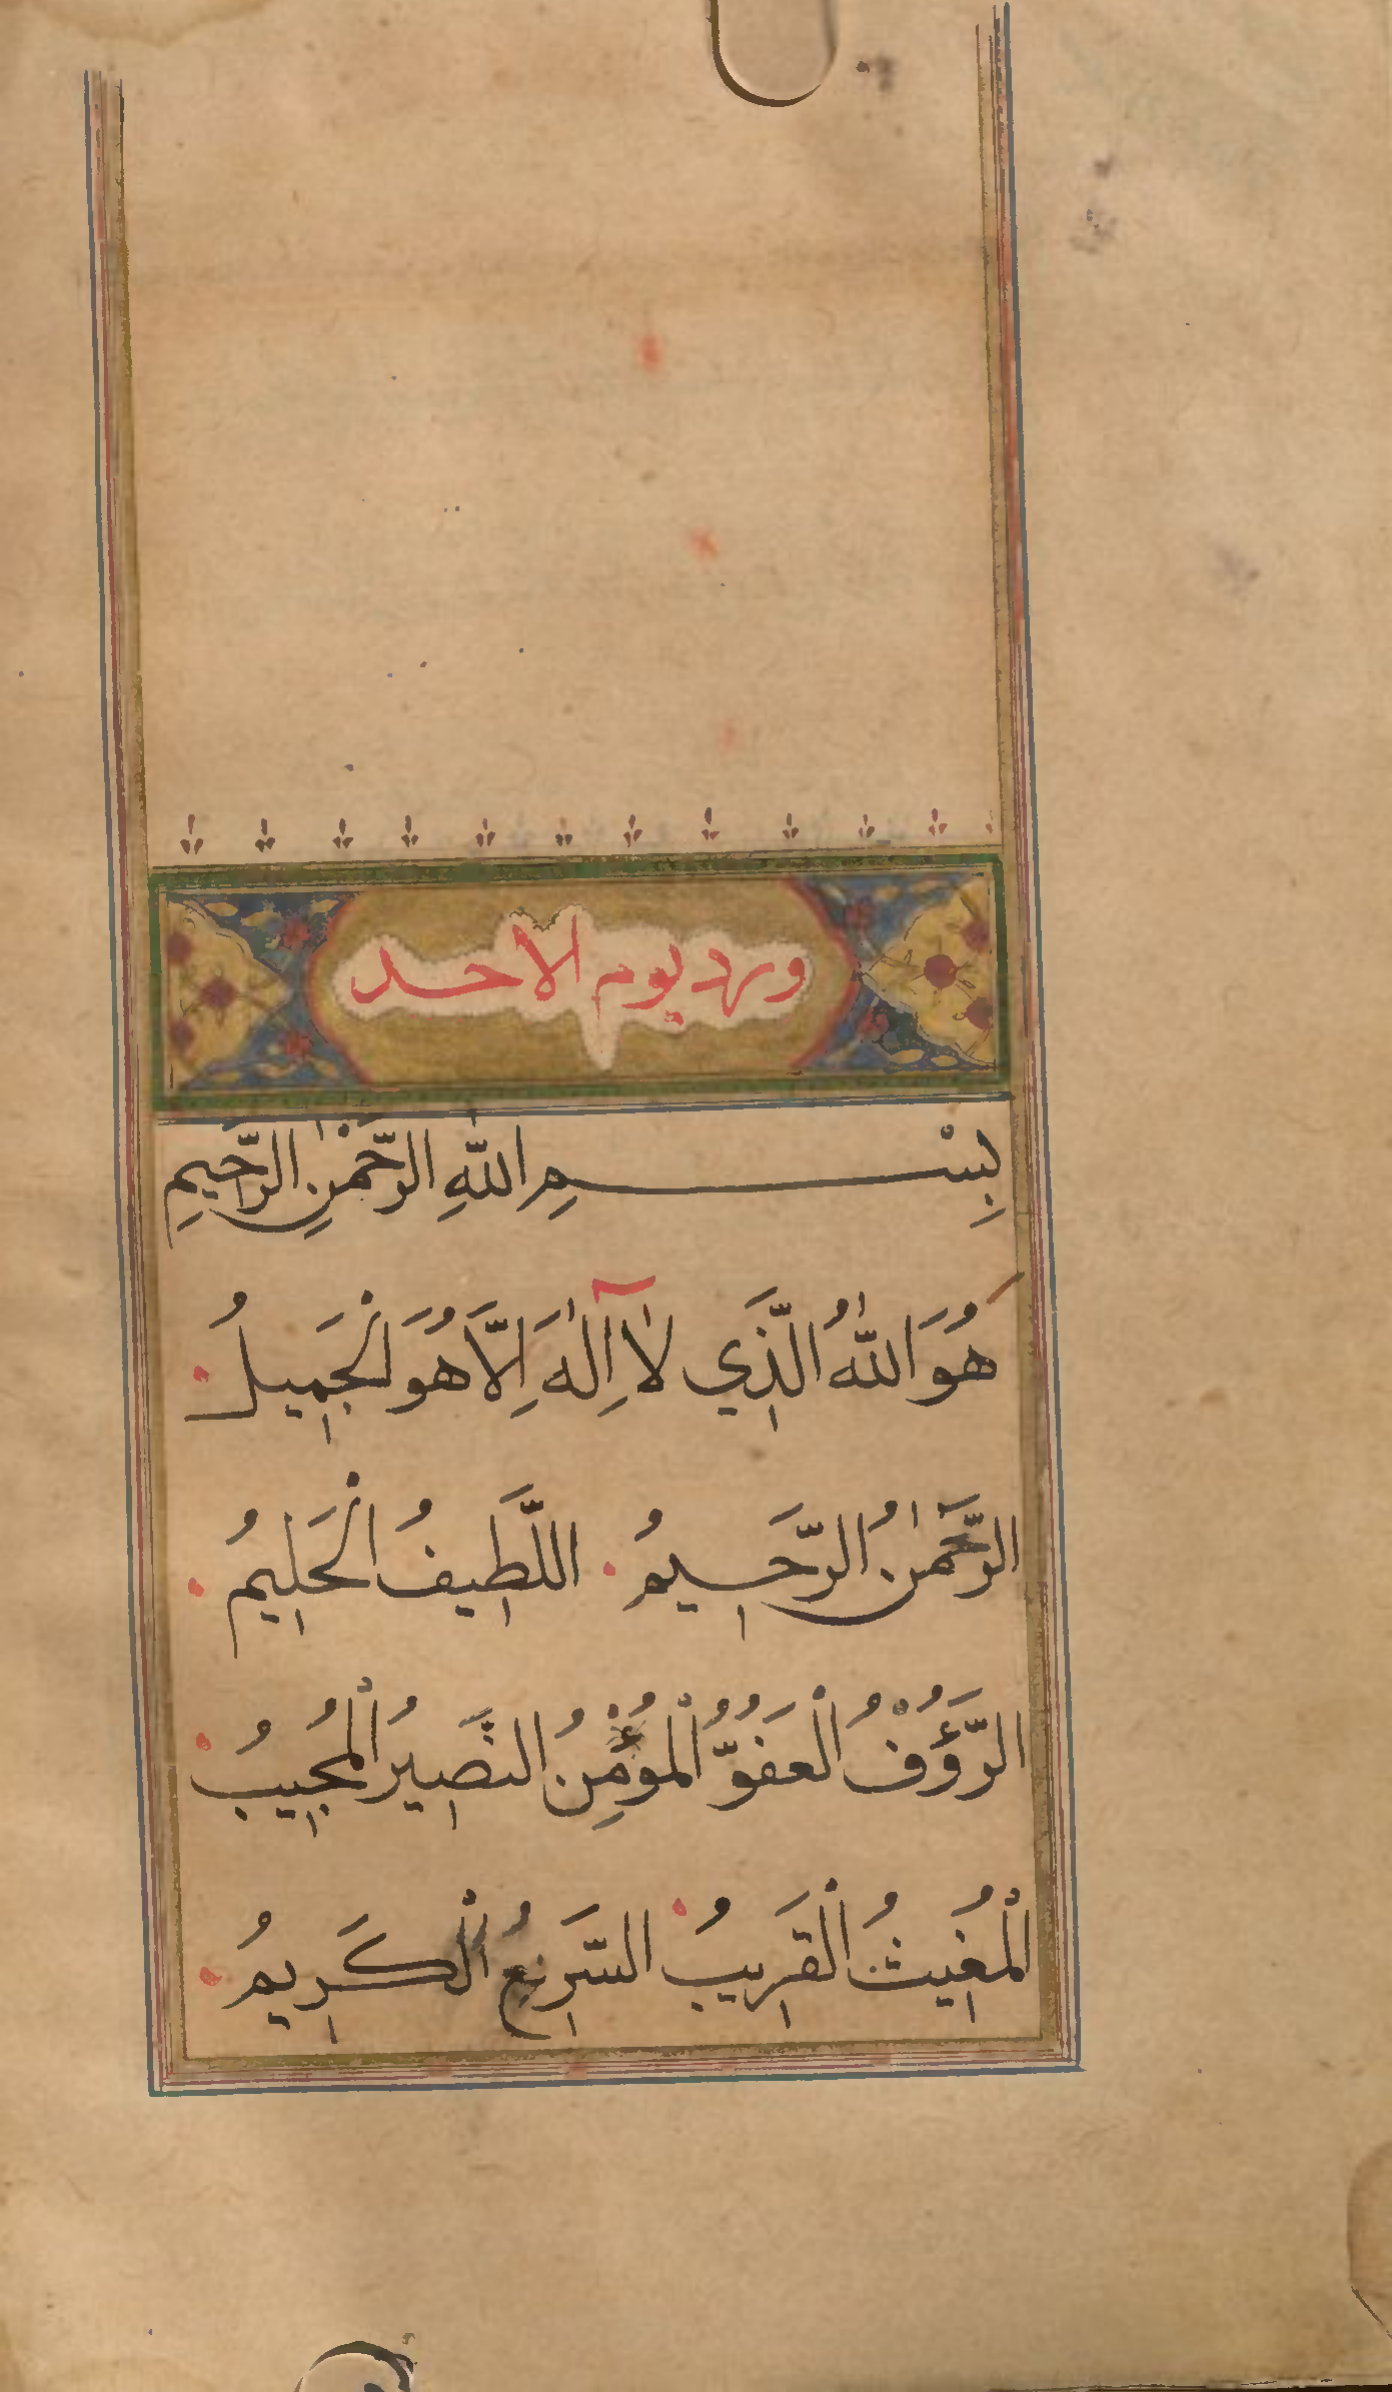 ورد يوم الاحد
بِسْمِ اللّٰهِ الرَّحْمٰنِ الرَّحِيمِ
هُوَ اللّٰهُ الَّذِي لَآ اِلٰهَ اِلَّا هُوَ الْجَمِيلُ
الرَّحْمٰنُ الرَّحِيمُ اللَّطِيفُ الْحَلِيمُ
الرَّؤُفُ الْعَفُوُّ الْمُؤْمِنُ النَّصِيرُ الْمُجِيبُ
الْمُغِيثُ الْقَرِيبُ السَّرِيعُ الْكَرِيمُ